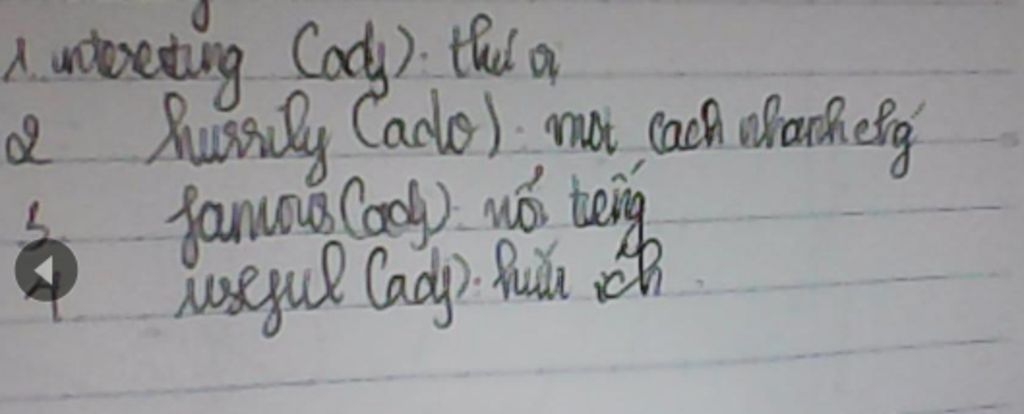 1. interesting (adj): thú vị
2 hurrily (adv): một cách nhanh chóng
3 famous (adj): nổi tiếng
4 useful (adj): hữu ích.